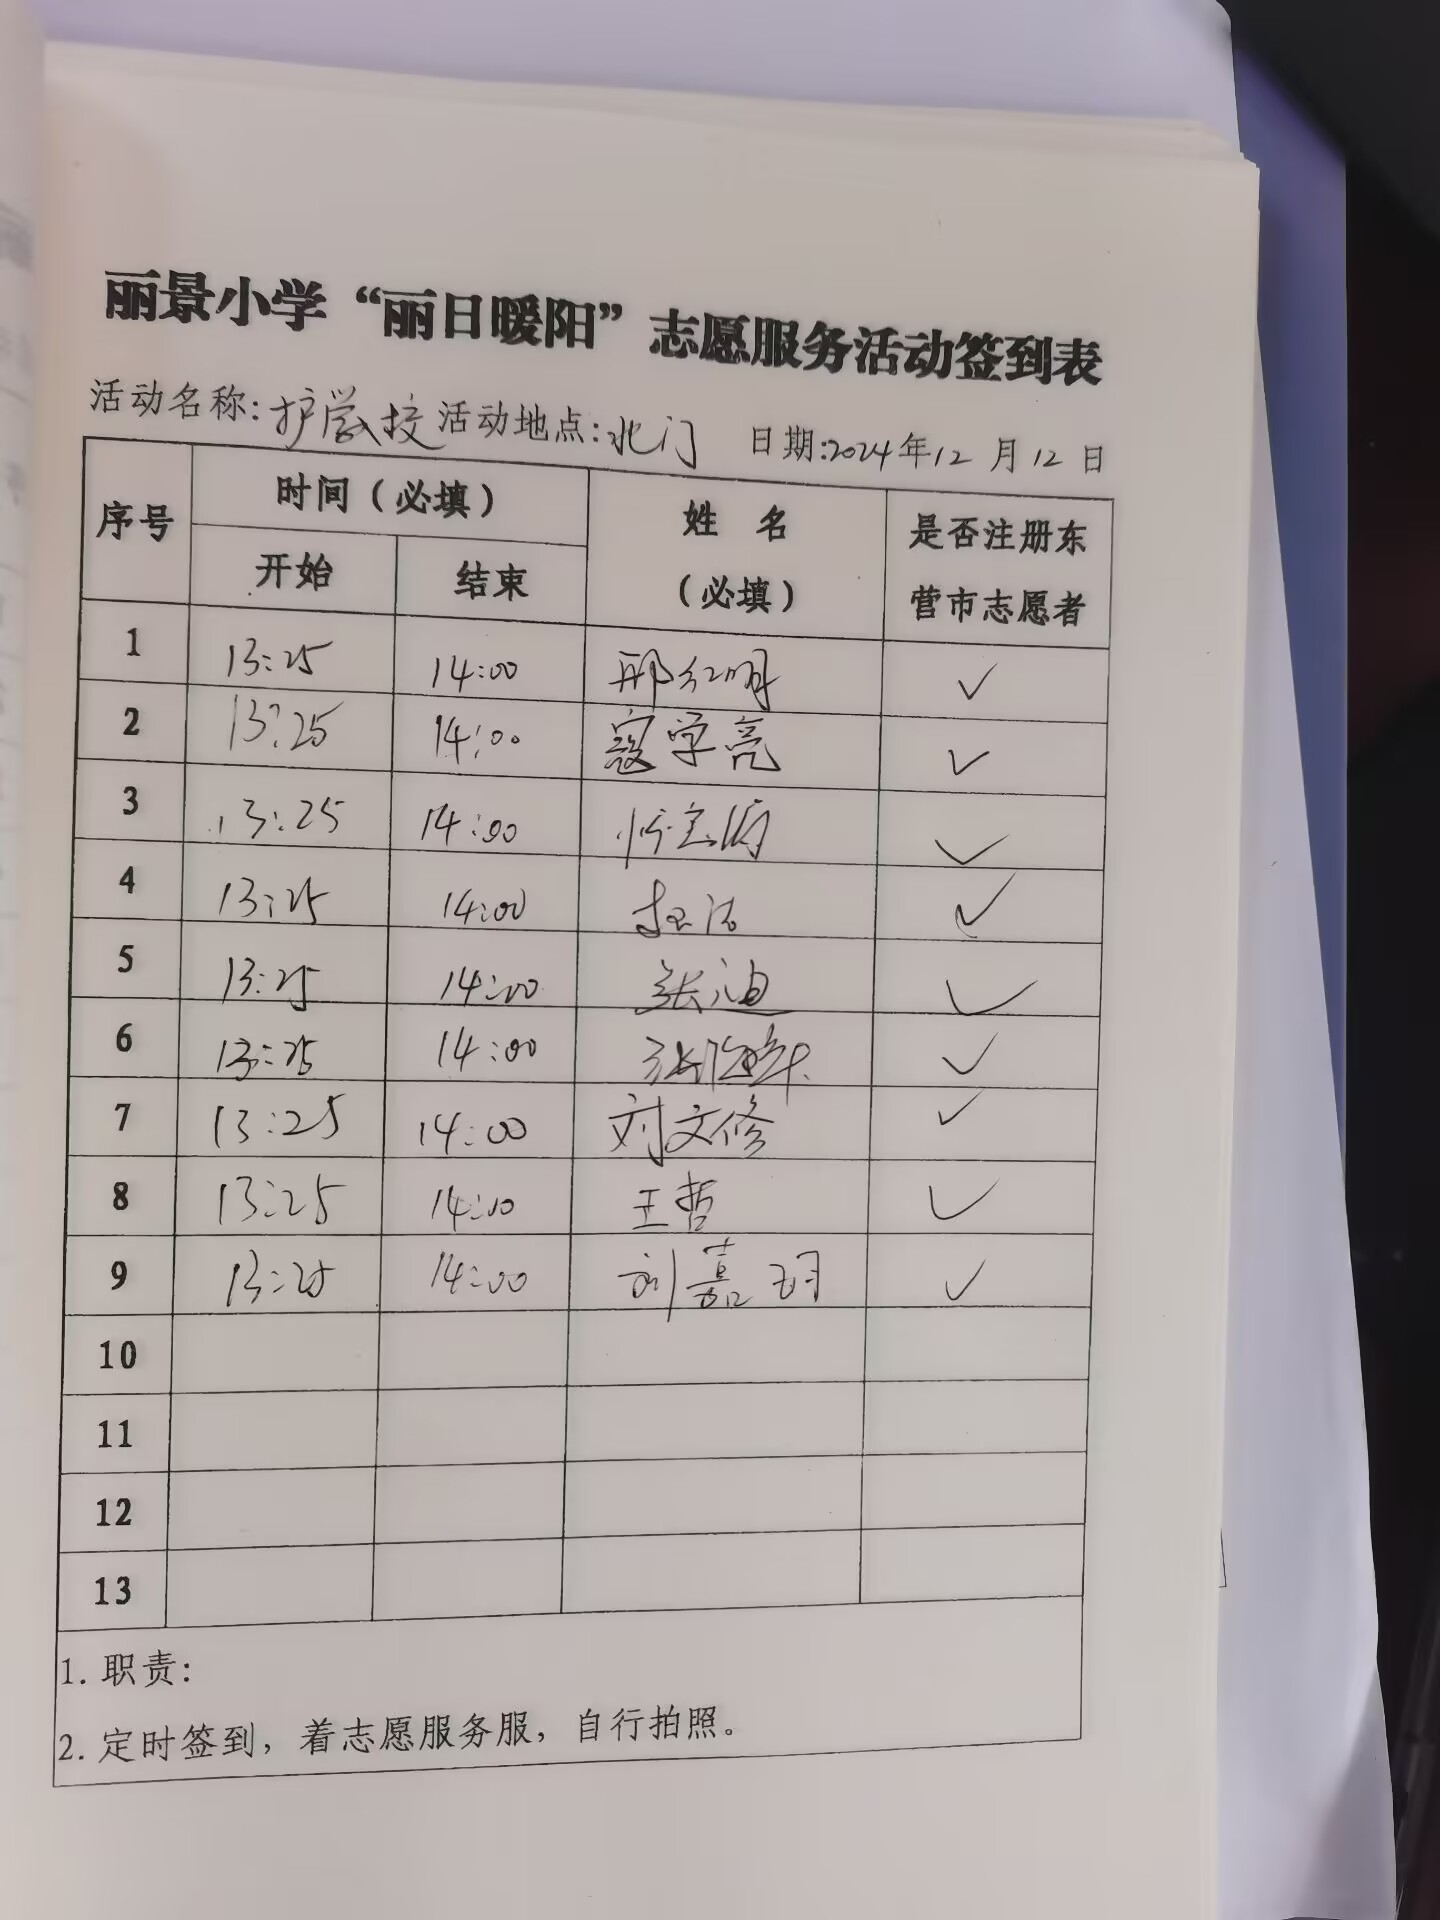 丽景小学“丽日暖阳”志愿服务活动签到表
活动名称:护学 活动地点:北门 日期:2024年12月12日
序号 时间(必填) 姓 名 (必填) 是否注册东营市志愿者
开始 结束
1 13:25 14:00 邢红明 ✓
2 13:25 14:00 寇学亮 ✓
3 13:25 14:00 ✓
4 13:25 14:00 ✓
5 13:25 14:00 张迪 ✓
6 13:25 14:00 ✓
7 13:25 14:00 刘文修 ✓
8 13:25 14:00 王哲 ✓
9 13:25 14:00 刘嘉玥 ✓
10
11
12
13
1. 职责:
2. 定时签到，着志愿服务服，自行拍照。